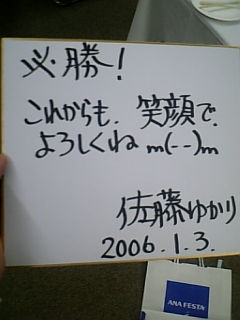 必勝!
これからも、笑顔で、
よろしくね m(--)m
佐藤ゆかり
2006.1.3.
ANA FESTA